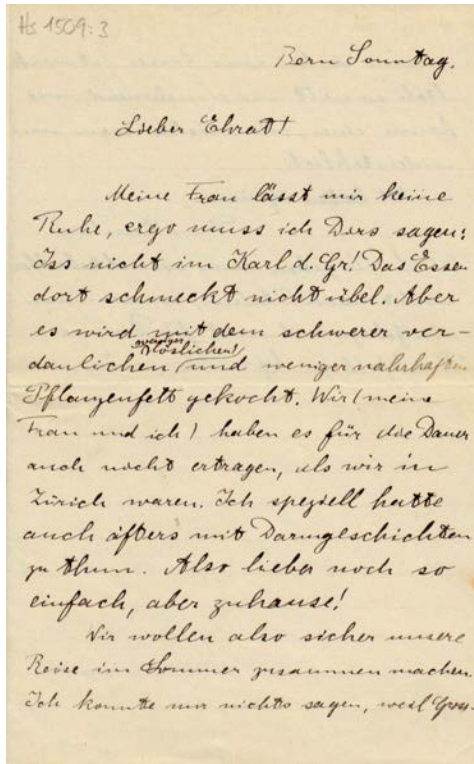 Hs 1509:3
Bern Sonntag.
Lieber Ehrat!
Meine Frau lässt mir keine
Ruhe, ergo muss ich Dirs sagen:
Iss nicht im Karl d. Gr.! Das Essen
dort schmeckt nicht übel. Aber
es wird mit dem schwerer ver-
(weniger löslichen)
daulichen und weniger nahrhaften
Pflanzenfett gekocht. Wir (meine
Frau und ich) haben es für die Dauer
auch nicht ertragen, als wir in
Zürich waren. Ich speziell hatte
auch öfters mit Darmgeschichten
zu thun. Also lieber noch so
einfach, aber zuhause!
Wir wollen also sicher unsere
Reise im Sommer zusammen machen.
Ich konnte nur nichts sagen, weil